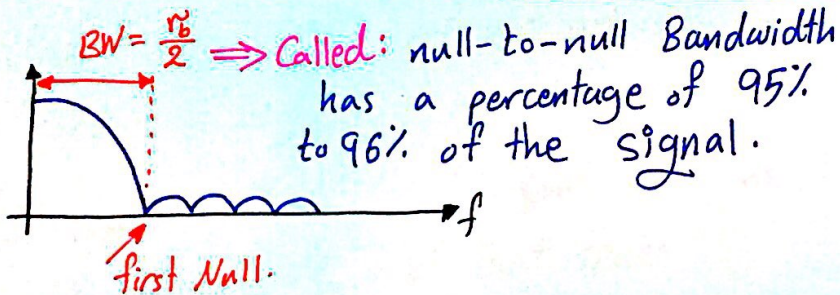 BW = rb/2 ⇒ Called: null-to-null Bandwidth
has a percentage of 95%
to 96% of the signal.
f
first Null.